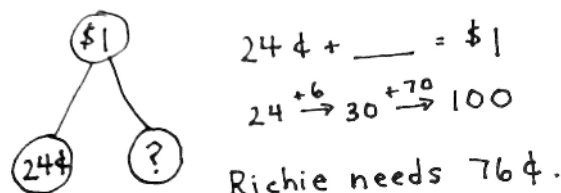 $1
24¢ ?
24¢ + ___ = $1
24 +6→ 30 +70→ 100
Richie needs 76¢.